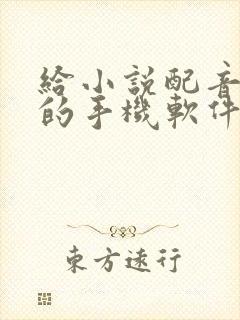 給小說配音
的手機軟件
東方遠行